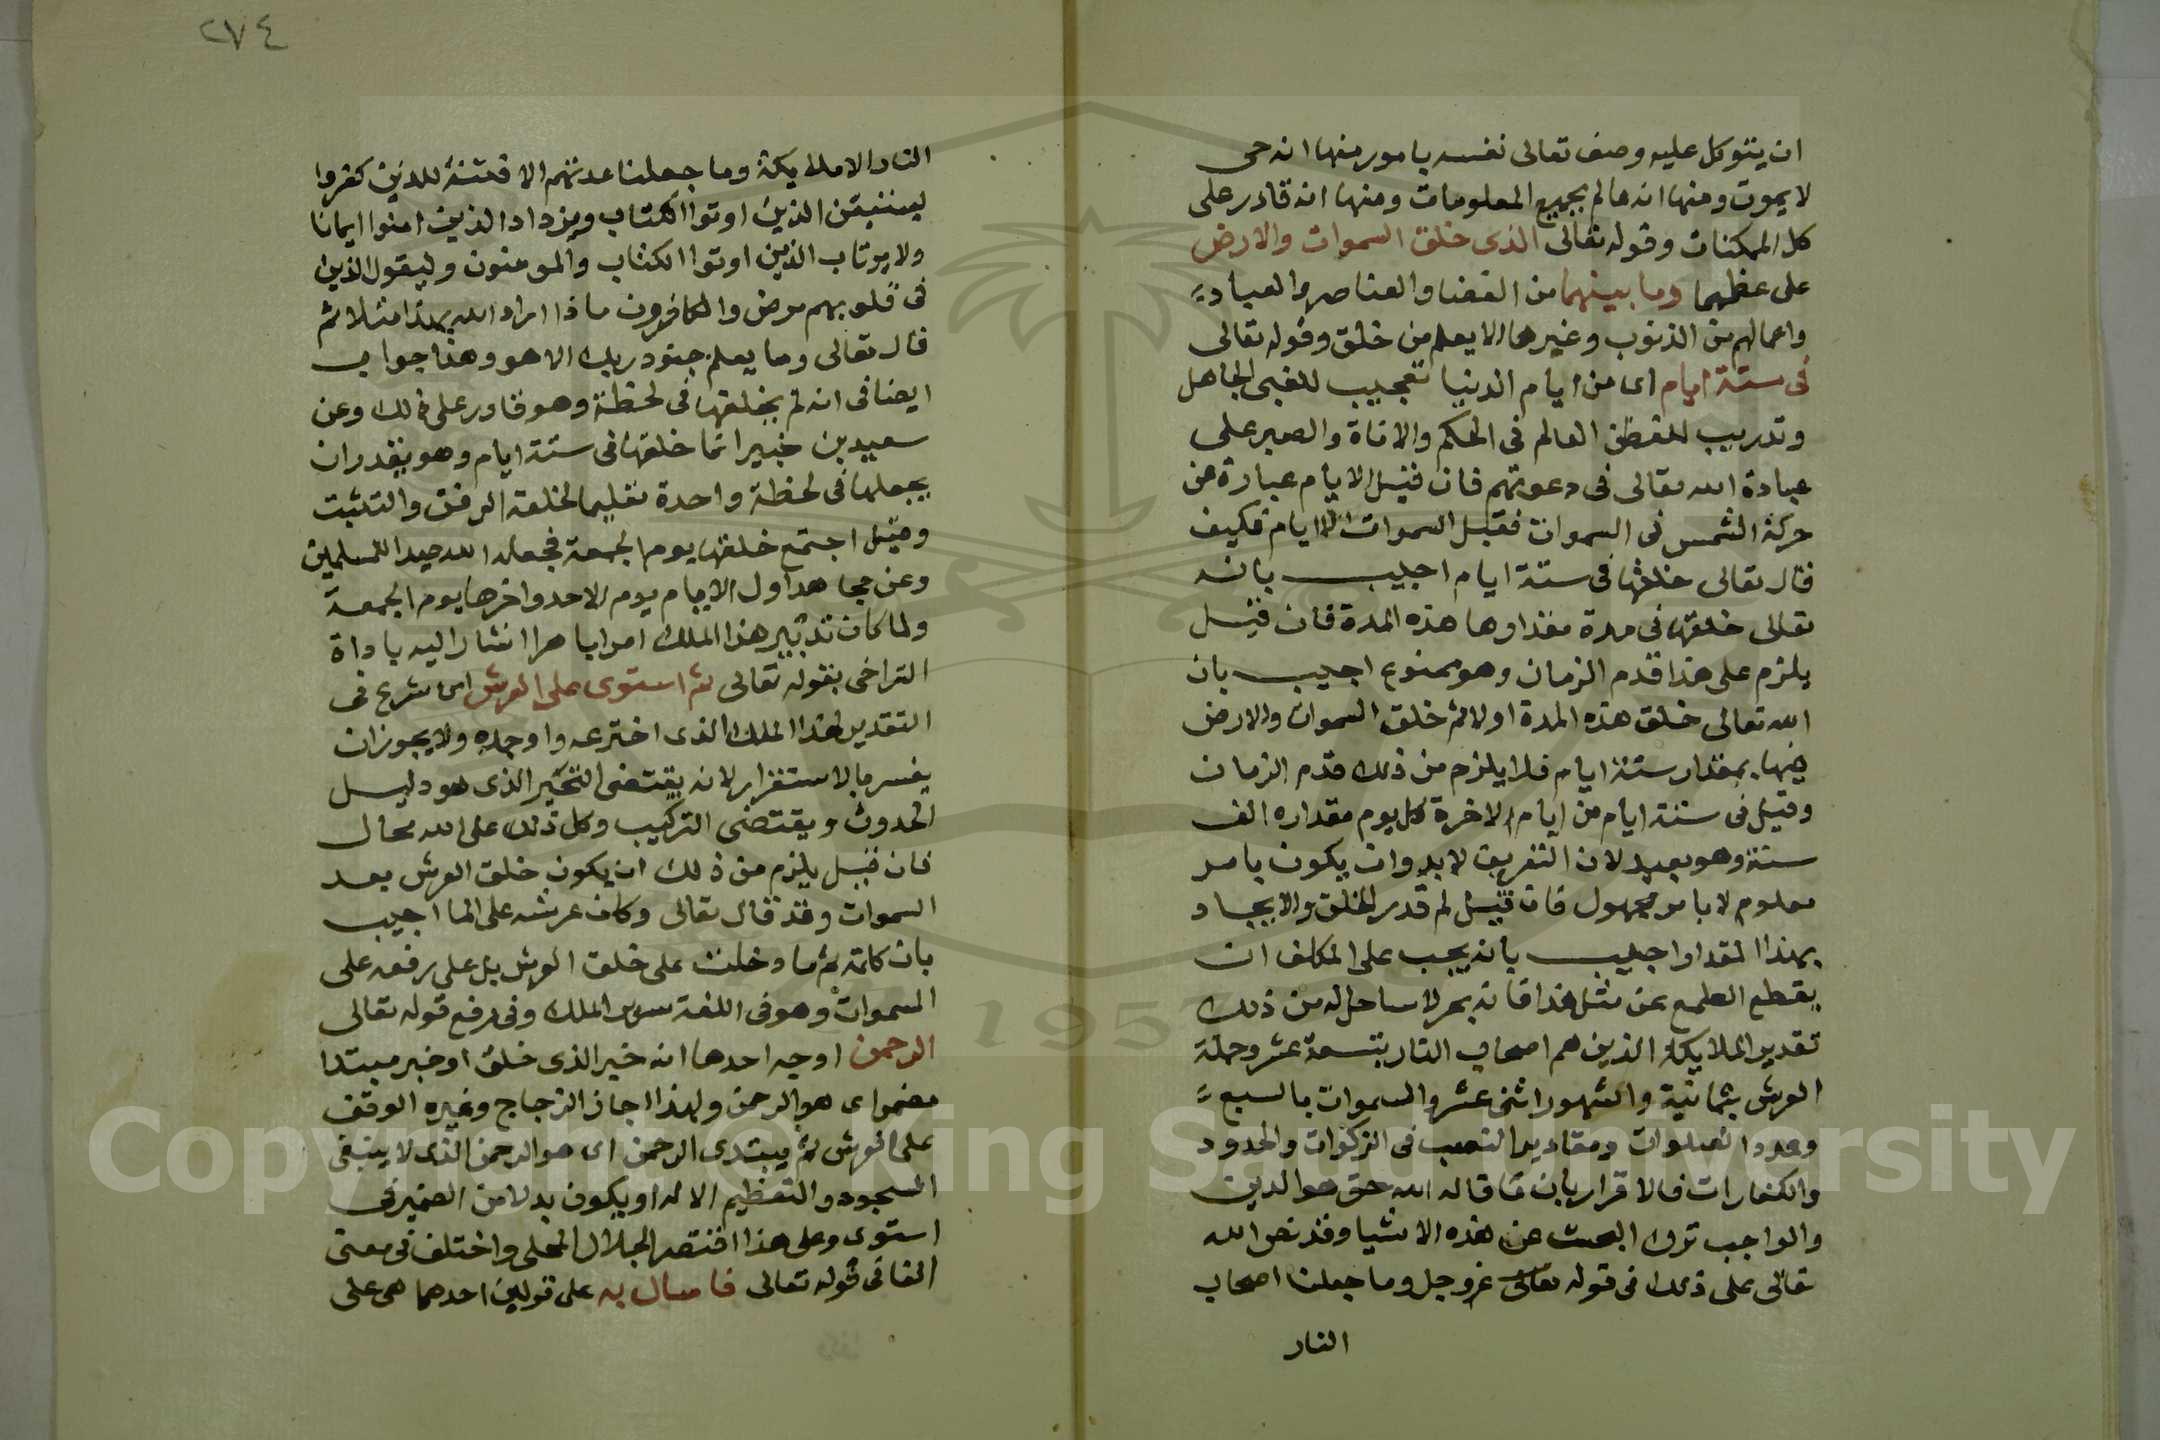 ان يتوكل عليه وصف تعالى نفسه بامور منها انه حى
لا يموت ومنها انه عالم بجميع المعلومات ومنها انه قادر على
كل الممكنات وقوله تعالى الذى خلق السموات والارض
على عظمهما وما بينهما من الفضا والعناصر والعباد
واعمالهم من الذنوب وغيرها الا يعلم من خلق وقوله تعالى
فى ستة ايام اى من ايام الدنيا تعجيب للغبى الجاهل
وتدريب للفطن العالم فى الحكم والاناة والصبر على
عبادة الله تعالى فى دعوتهم فان قيل الايام عبارة عن
حركة الشمس فى السموات فقبل السموات لا ايام فكيف
قال تعالى خلقها فى ستة ايام اجيب بانه
تعالى خلقها فى مدة مقدارها هذه المدة فان قيل
يلزم على هذا قدم الزمان وهو ممنوع اجيب بان
الله تعالى خلق هذه المدة اولا ثم خلق السموات والارض
فيها بمقدار ستة ايام فلا يلزم من ذلك قدم الزمان
وقيل فى ستة ايام من ايام الاخرة كل يوم مقداره الف
سنة وهو بعيد لان التعريف لا بد وان يكون بامر
معلوم لا بامر مجهول فان قيل لم قدر الخلق والايجاد
بهذا المقدار اجيب بانه يجب على المكلف ان
يقطع الطمع عن مثل هذا فانه بحر لا ساحل له من ذلك
تقدير الملايكة الذين هم اصحاب النار بتسعة عشر وحملة
العرش بثمانية والشهور اثنى عشر والسموات بالسبع
وعدد الصلوات ومقادير النصب فى الزكوات والحدود
والكفارات فالاقرار بان ما قاله الله حق هو الدين
والواجب ترك البحث عن هذه الاشيا وقد نص الله
تعالى على ذلك فى قوله تعالى عز وجل وما جعلنا اصحاب
النار
٢٧٤
النار الا ملايكة وما جعلنا عدتهم الا فتنة للذين كفروا
ليستيقن الذين اوتوا الكتاب ويزداد الذين امنوا ايمانا
ولا يرتاب الذين اوتوا الكتاب والمومنون وليقول الذين
فى قلوبهم مرض والكافرون ماذا اراد الله بهذا مثلا ثم
قال تعالى وما يعلم جنود ربك الا هو وهذا جواب
ايضا فى انه لم يخلقها فى لحظة وهو قادر على ذلك وعن
سعيد بن جبير انما خلقها فى ستة ايام وهو يقدر ان
يجعلها فى لحظة واحدة تعليما لخلقه الرفق والتثبت
وقيل اجتمع خلقها يوم الجمعة فجعله الله عيدا للمسلمين
وعن مجاهد اول الايام يوم الاحد واخرها يوم الجمعة
ولما كان تدبير هذا الملك امرا باهرا اشار اليه باداة
التراخى بقوله تعالى ثم استوى على العرش اى شرع فى
التقدير لهذا الملك الذى اخترعه واوجده ولا يجوز ان
يفسر بالاستقرار لانه يقتضى التغير الذى هو دليل
الحدوث ويقتضى التركيب وكل ذلك على الله محال
فان قيل يلزم من ذلك ان يكون خلق العرش بعد
السموات وقد قال تعالى وكان عرشه على الما اجيب
بان كلمة ثم ما دخلت على خلق العرش بل على رفعه على
السموات وهو فى اللغة سرير الملك وفى رفع قوله تعالى
الرحمن اوجه احدها انه خبر الذى خلق او خبر مبتدا
مضمر اى هو الرحمن ولهذا اجاز الزجاج وغيره الوقف
على العرش ثم يبتدى الرحمن اى هو الرحمن الذى لا ينبغى
السجود والتعظيم الا له او يكون بدلا من الضمير فى
استوى وعلى هذا اقتصر الجلال المحلى واختلف فى معنى
الفا فى قوله تعالى فاسال به على قولين احدهما هى على
Copyright © King Saud University
1957